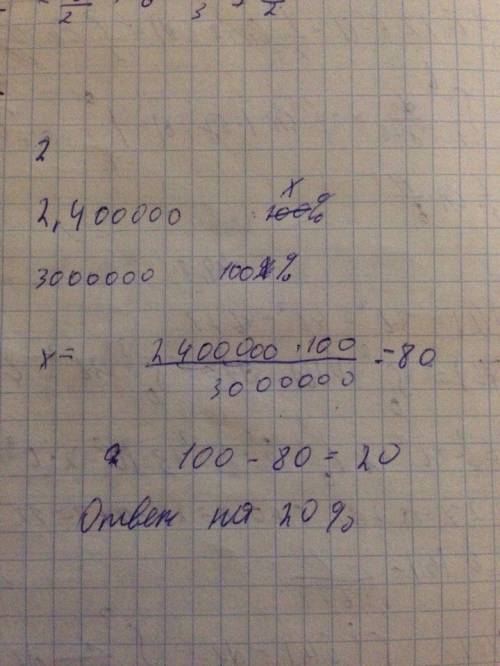 2
2,400000 x %
3000000 100%
x = 2400000 · 100 / 3000000 = 80
100 - 80 = 20
Ответ на 20%